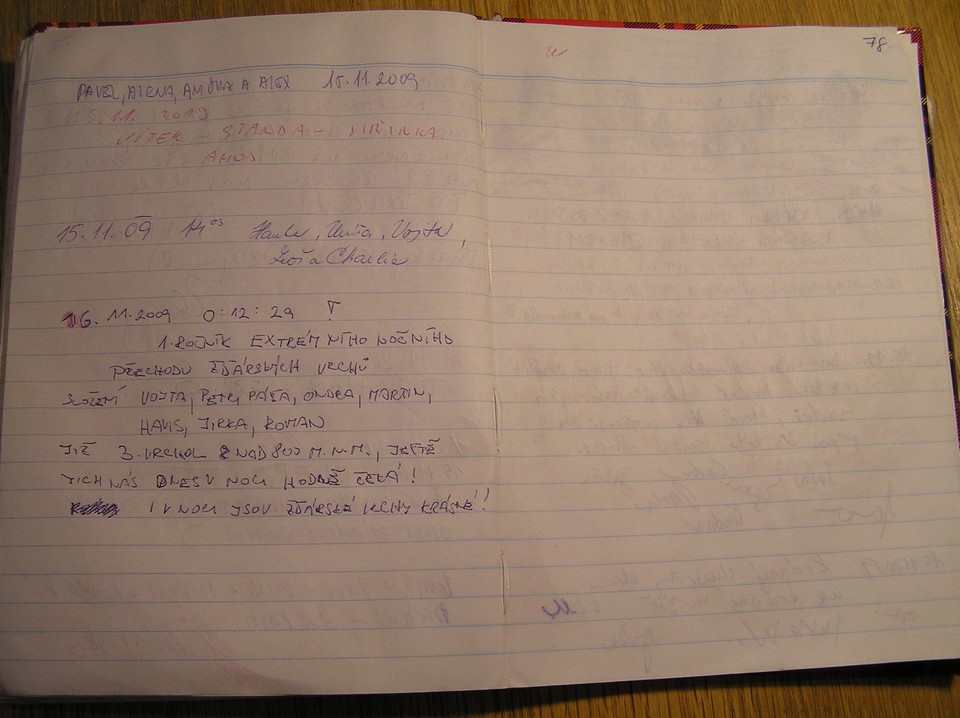 78
PAVEL, ALENA, AMÁLKA A ALEX 15.11.2009
15.11.2009
VÍTEK - STANDA - JIŘINKA
AHOJ
15.11.09 14⁰⁵ Vojta,
a Charlie
16.11.2009 0:12:29
1. ROČNÍK EXTRÉMNÍHO NOČNÍHO
PŘECHODU ŽĎÁRSKÝCH VRCHŮ
SLOŽENÍ VOJTA, PETR, PÁŤA, ONDRA, MARTIN,
HAVIS, JIRKA, ROMAN
JIŽ 3. VRCHOL NAD 800 M.N.M., JEŠTĚ
JICH NÁS DNES V NOCI HODNĚ ČEKÁ!
I V NOCI JSOU ŽĎÁRSKÉ VRCHY KRÁSNÉ!!